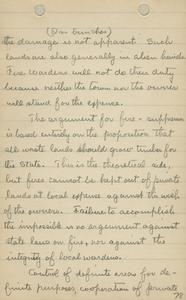 the damage is not apparent. Such
lands are also generally in alien hands
Fire wardens will not do their duty
because neither the town nor the owner
will stand for the expense.
The argument for fire - suppression
is based entirely on the proposition that
all waste lands should grow timber for
the State. This is the theoretical side,
but fires cannot be kept out of private
lands at local expense against the will
of the owners. Failure to accomplish
the impossible is no argument against
state laws on fire, nor against the
integrity of local wardens.
Control of definite areas for de-
finite purposes, cooperation of private